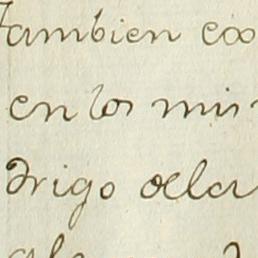 tambien ex
en los mis
drigo de la